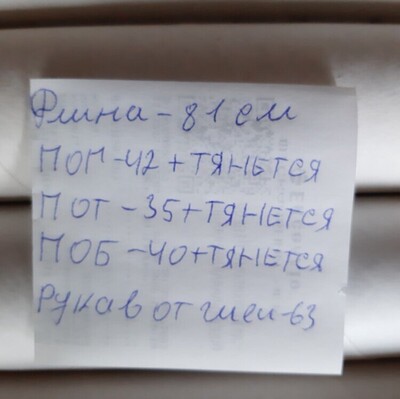 Длина - 81 см
ПОГ - 42 + ТЯНЕТСЯ
ПОТ - 35 + ТЯНЕТСЯ
ПОБ - 40 + ТЯНЕТСЯ
Рукав от шеи - 63